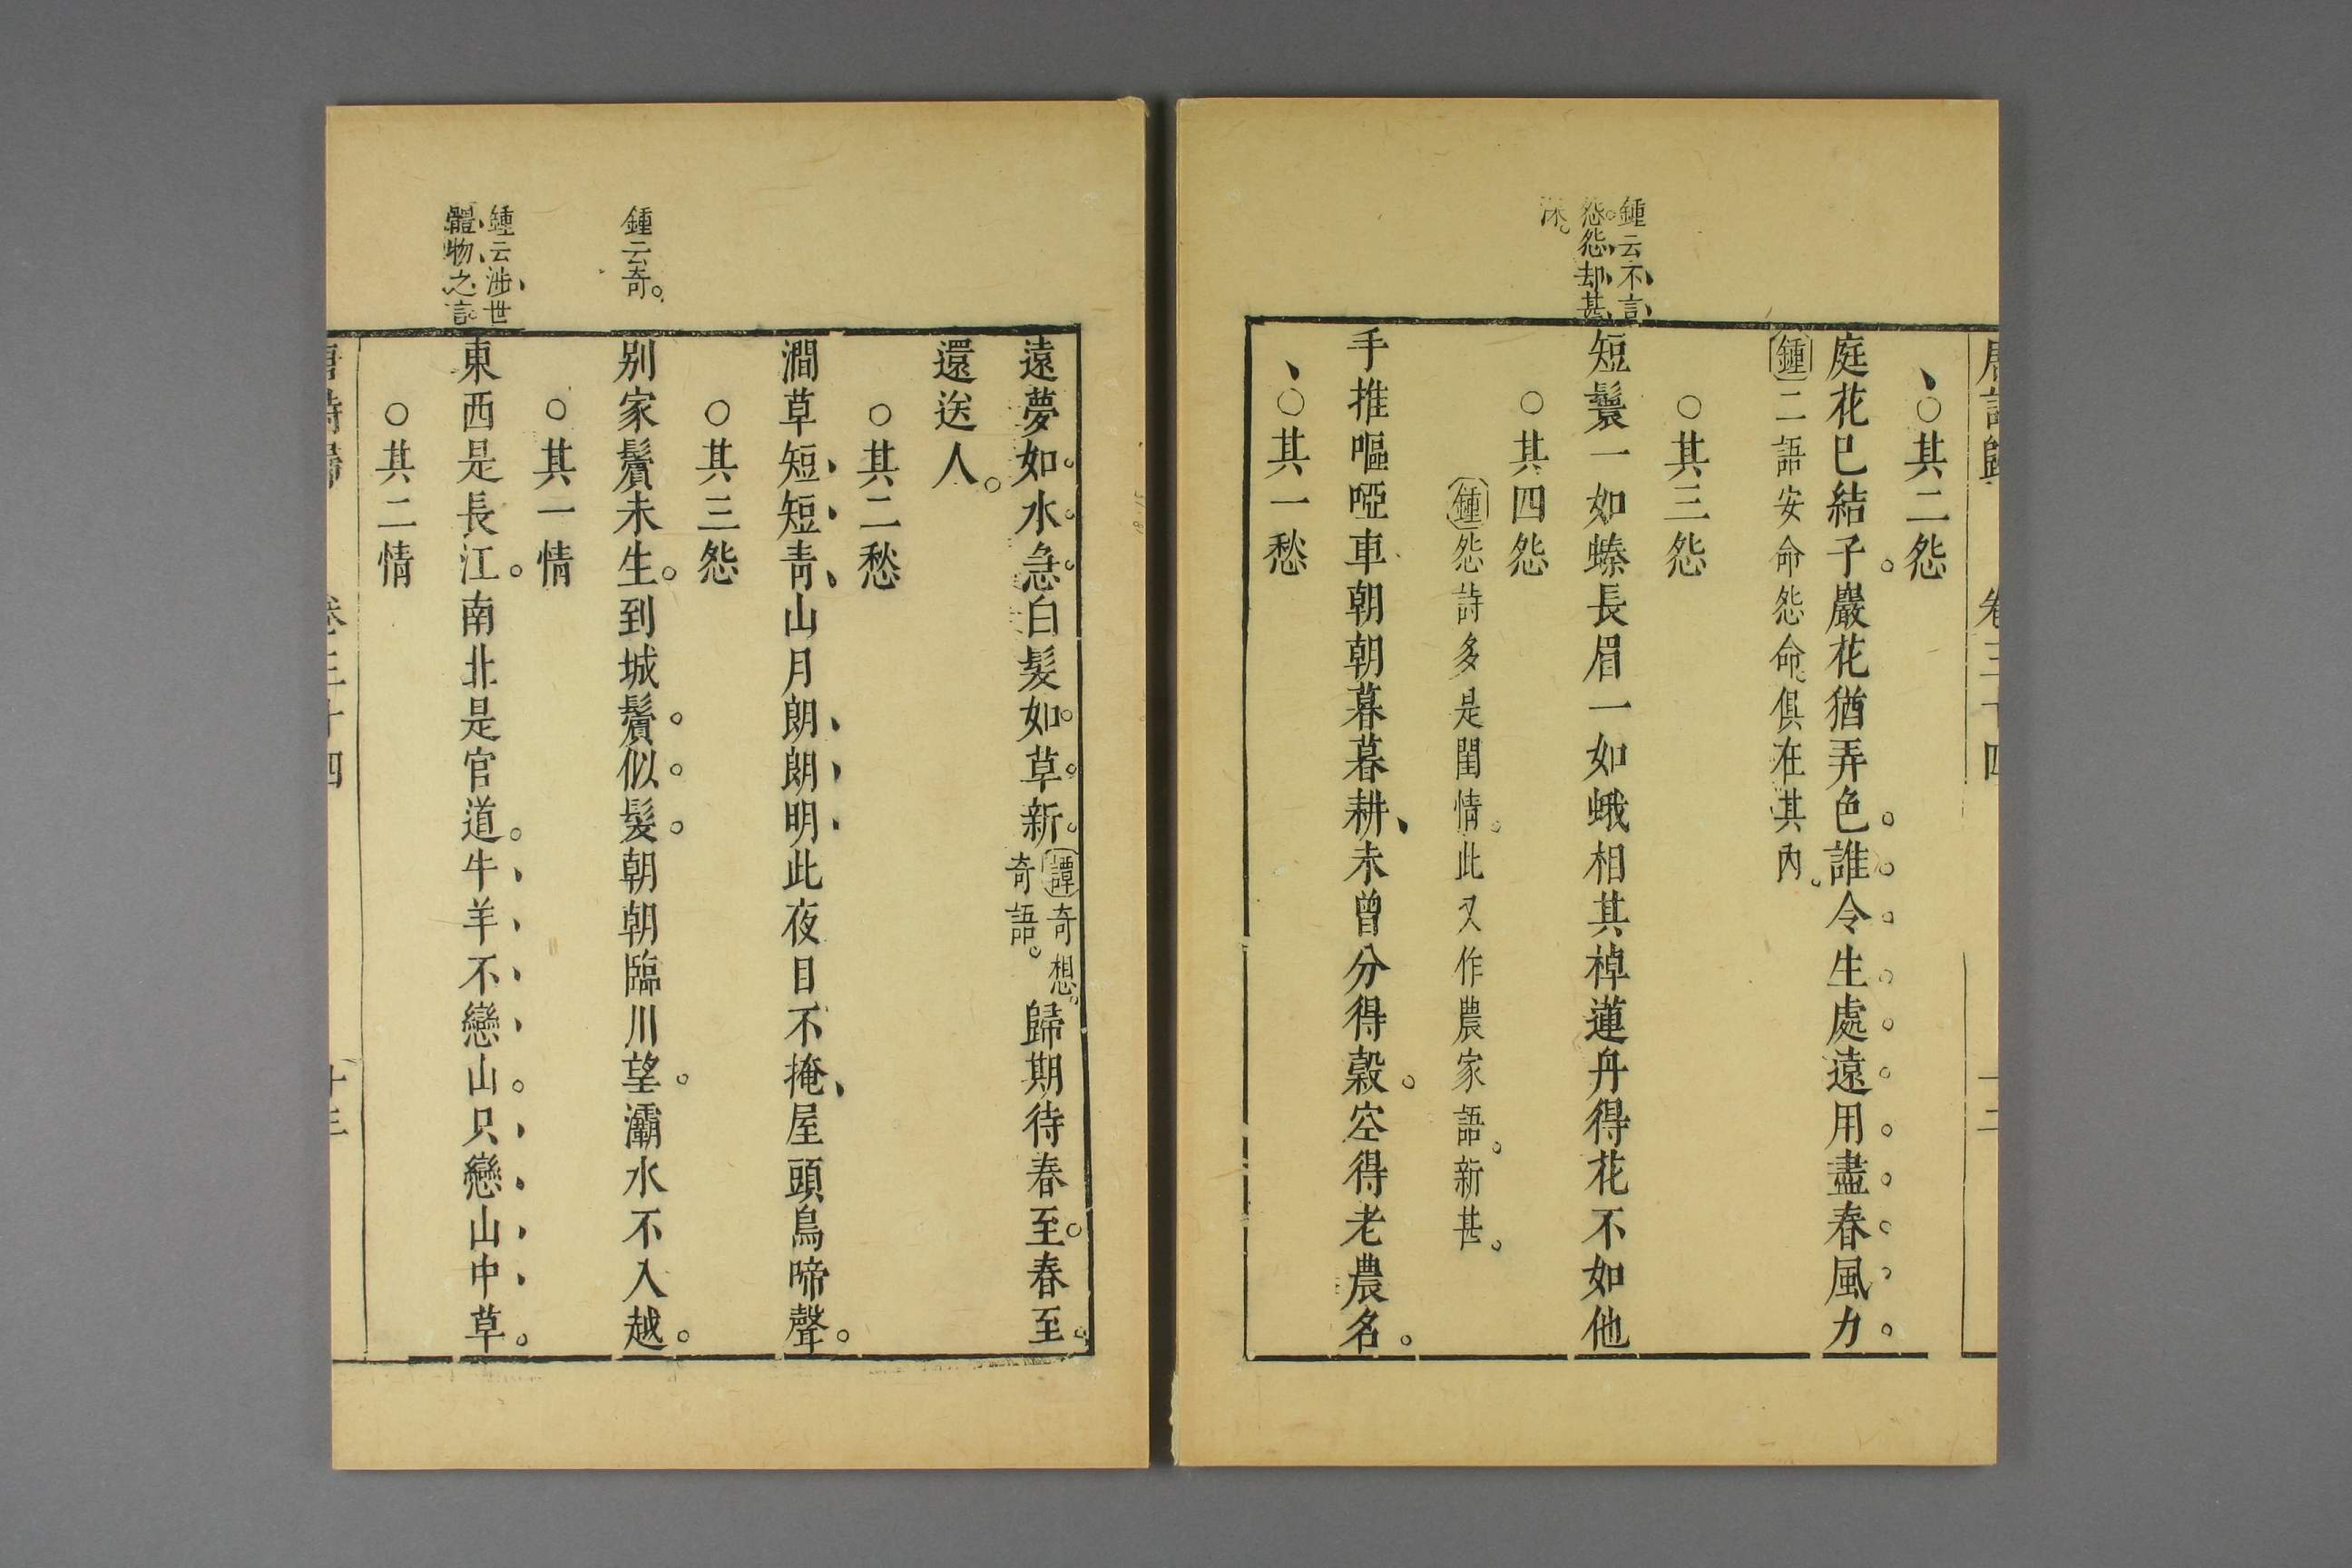 ○其二怨
庭花巳結子。巖花猶弄色。誰令生處遠用盡春風力
鍾二語安命怨命俱在其內。
○其三怨
鍾云不言
怨。怨却甚
深。
短鬟一如螓長眉一如蛾相其棹蓮舟得花不如他
○其四怨
鍾怨詩多是閨情。此又作農家語。新甚。
手推嘔啞車朝朝暮暮耕、未曾分得穀。空得老農名。
、○其一愁
遠夢如水急白髮如草新譚奇想。
奇語。
歸期待春至。春至
還送人。
○其二愁
澗草短短青山月朗朗明此夜目不掩、屋頭鳥啼聲。
○其三怨
鍾云奇。
別家鬢未生。到城鬢似髮。朝朝臨川望。灞水不入越。
○其一情
鍾云涉世
體物之言
東西是長江。南北是官道。牛羊不戀山。只戀山中草。
○其二情
卷三十四
十三